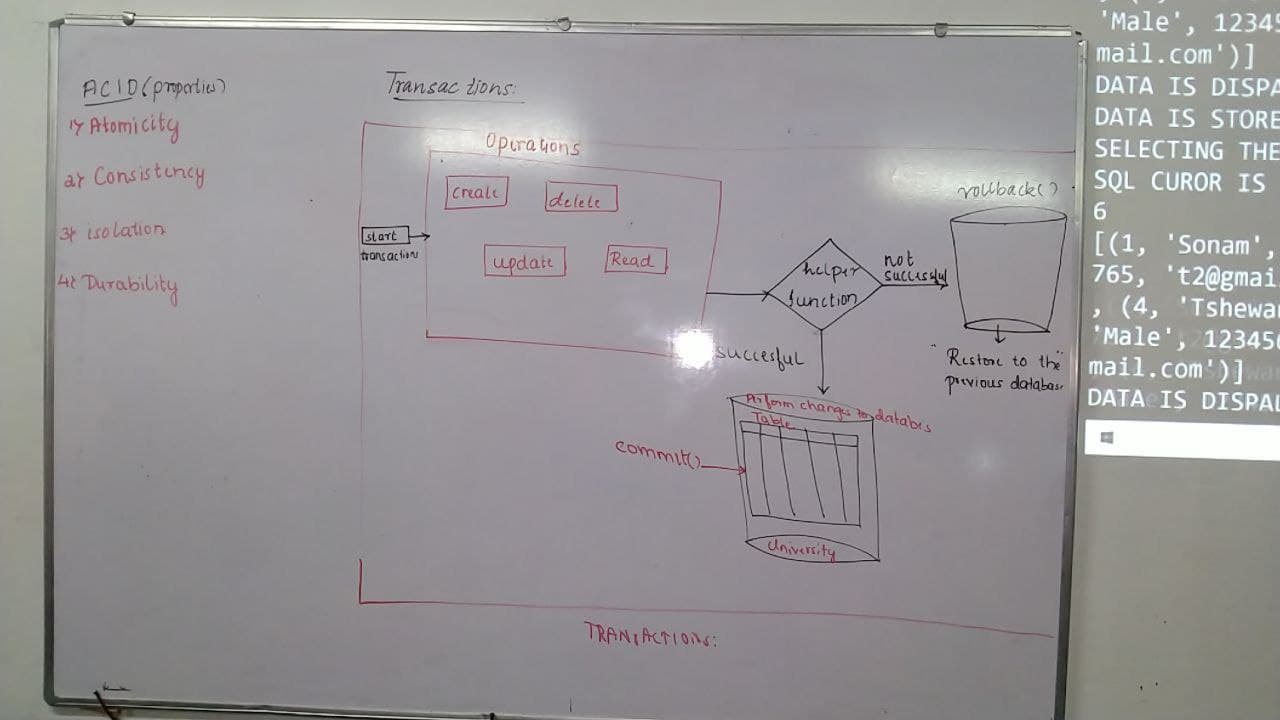 ACID(properties)
1) Atomicity
2) Consistency
3) isolation
4) Durability
Transactions:
Operations
create
delete
update
Read
start
transaction
helper
function
not
succissful
rollback()
"Restore to the"
previous database
succesful
Perform changes to databes
Table
commit()
University
TRANSACTIONS:
'Male', 12345
mail.com')]
DATA IS DISPA
DATA IS STORE
SELECTING THE
SQL CUROR IS
6
[(1, 'Sonam',
765, 't2@gmai
, (4, 'Tshewa
'Male', 123456
mail.com')]
DATA IS DISPAL